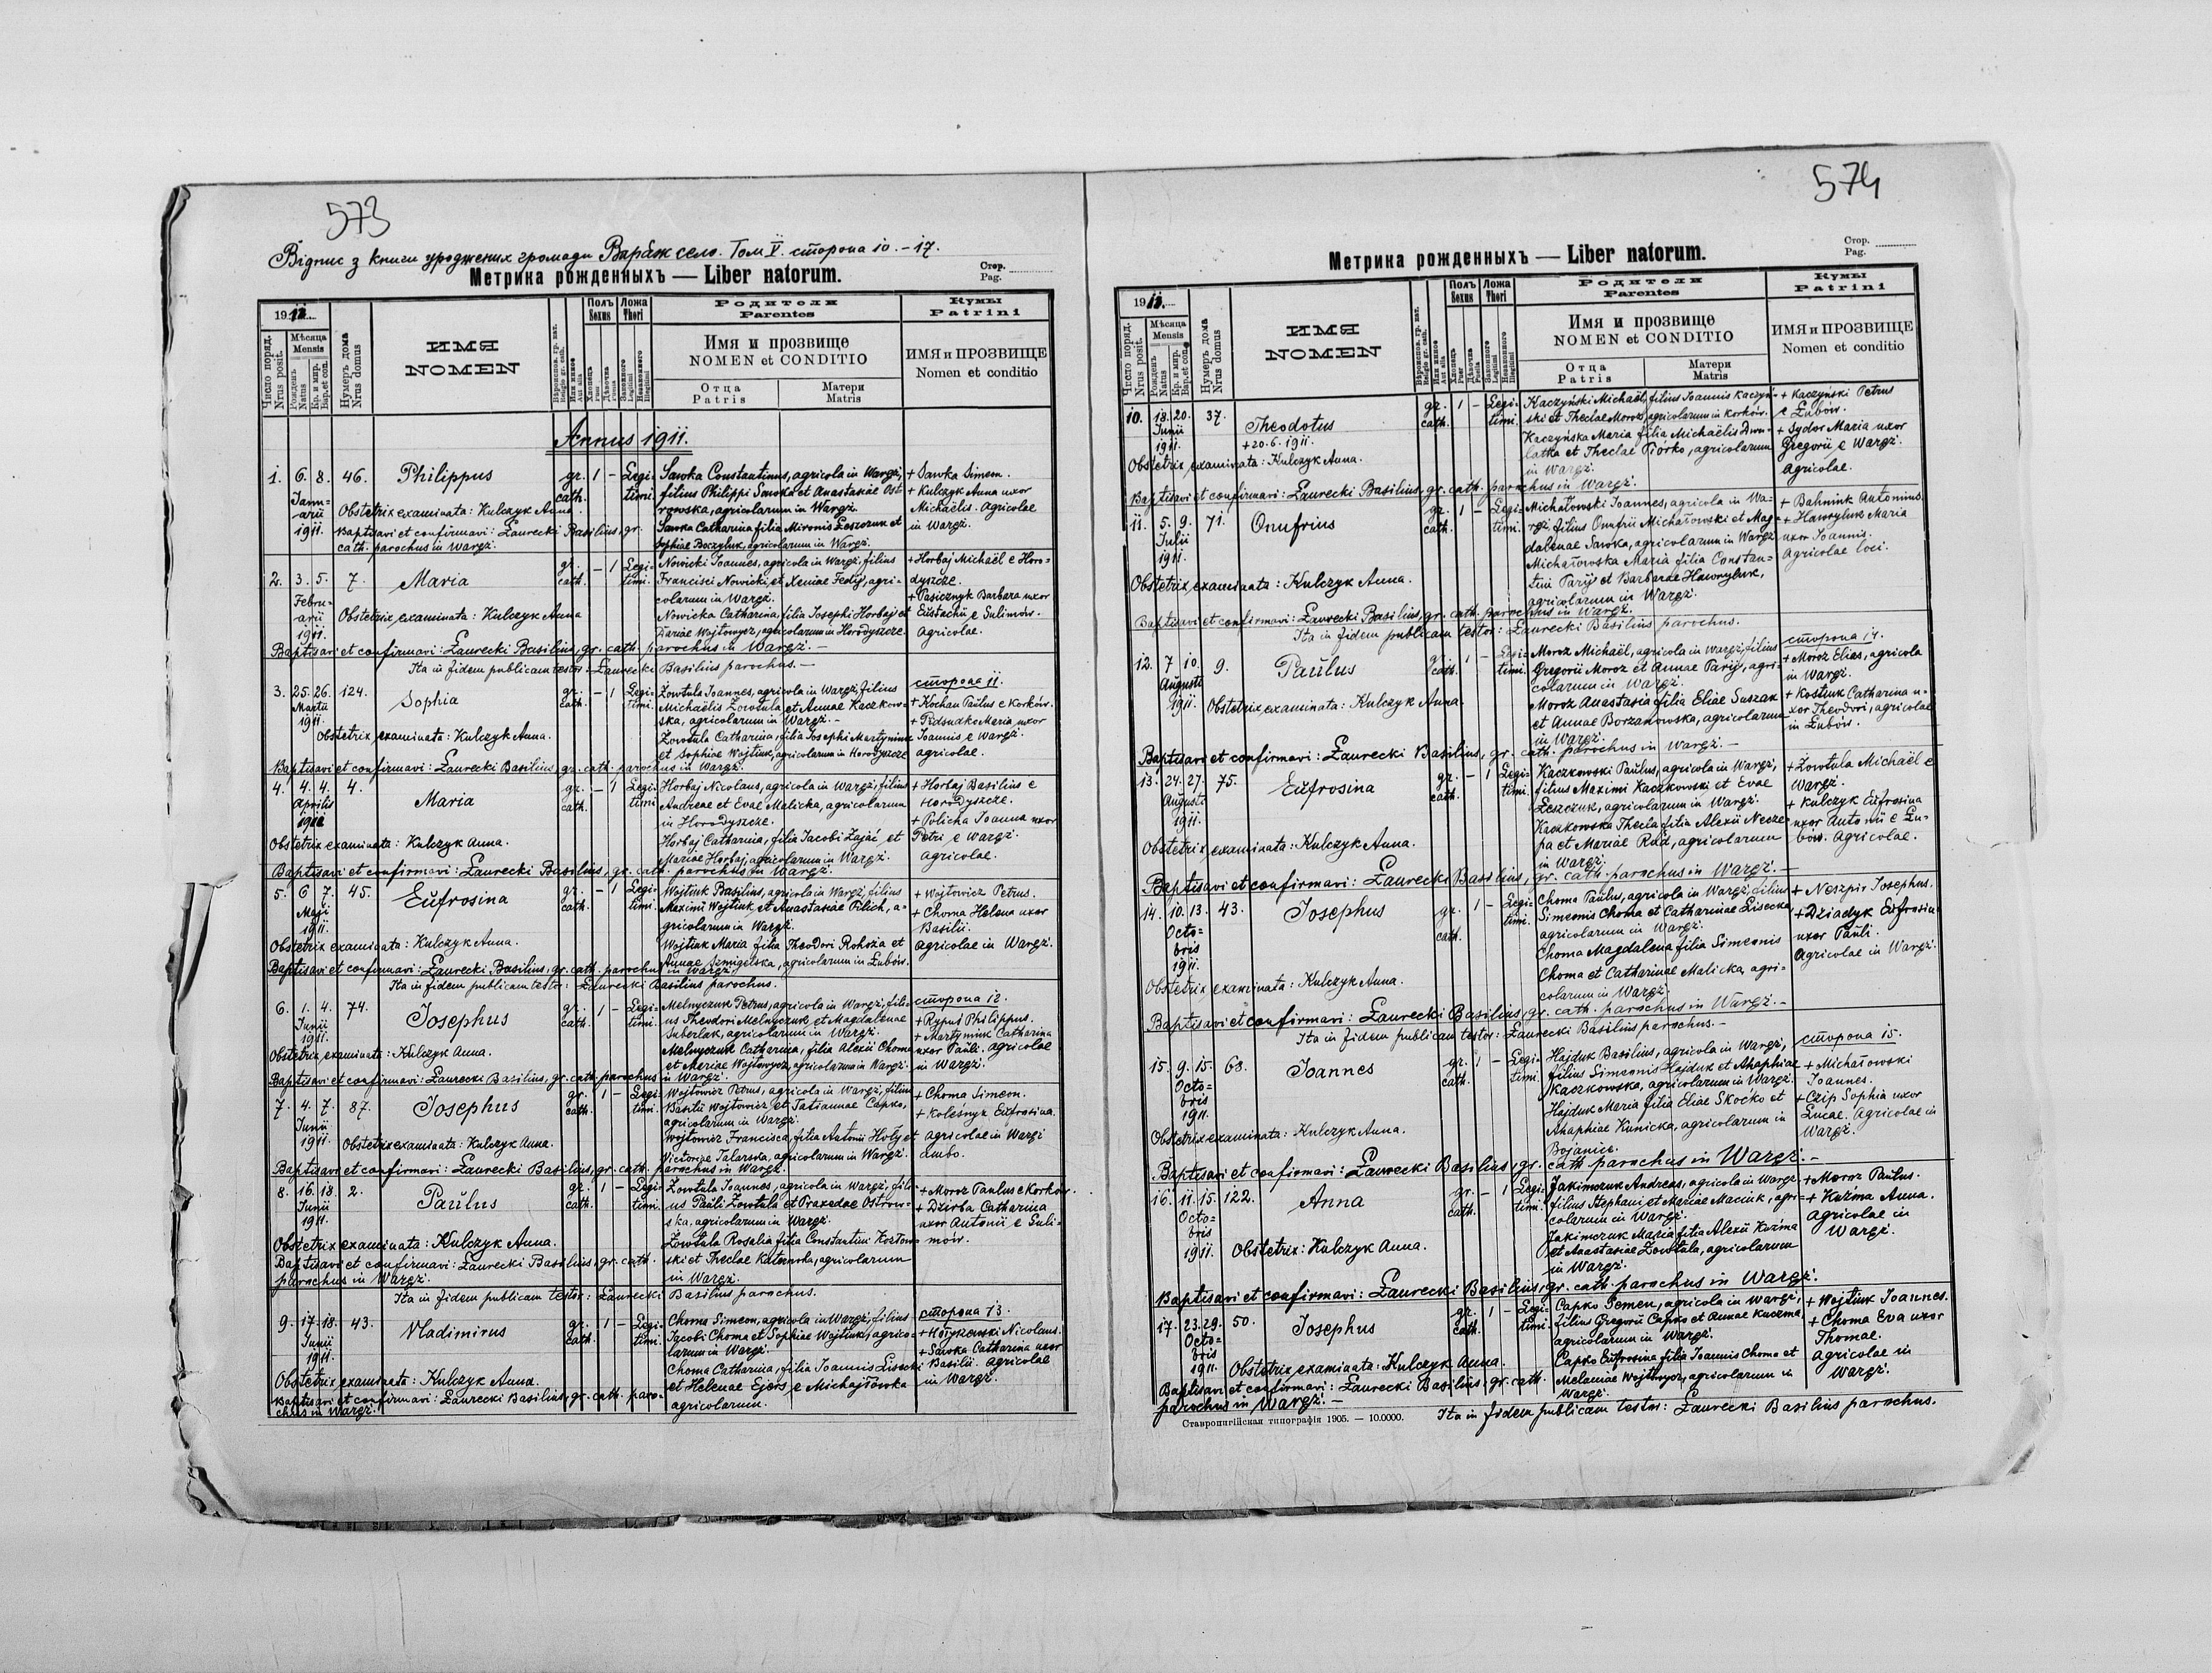 573
Відпис з книги уроджених громади Варяж село. Том V. сторона 10.-17.
Метрика рожденныхъ — Liber natorum.
Стор.
Pag.
Число поряд.
Nrus posit.
Мѣсяца
Mensis
Рожденъ
Natus
Кр. и мир.
Bap. et con.
Нумеръ дома
Nrus domus
ИМЯ
NOMEN
Полъ
Sexus
Ложа
Thori
Родители
Parentes
Имя и прозвище
NOMEN et CONDITIO
Отца
Patris
Матери
Matris
Кумы
Patrini
ИМЯ и ПРОЗВИЩЕ
Nomen et conditio
Annus 1911.
1. 6. 8. Januarii 1911. 46. Philippus gr. cath. 1 – Legitimi.
Sawka Constantinus, agricola in Waręż,
filius Philippi Sawka et Anastasiae Ost
rowska, agricolarum in Waręż.
Sawka Catharina filia Mironis Leszczuk et
Sophiae Boczyluk, agricolarum in Waręż.
+ Sawka Simeon.
+ Kulczyk Anna uxor
Michaëlis. Agricolae
in Waręż.
Obstetrix examinata: Kulczyk Anna.
Baptisavi et confirmavi: Laurecki Basilius, gr.
cath. parochus in Waręż.
2. 3. 5. Februarii 1911. 7. Maria gr. cath. – 1 Legitimi.
Nowicki Joannes, agricola in Waręż, filius
Francisci Nowicki, et Xeniae Fedij, agri-
colarum in Waręż.
Nowicka Catharina, filia Josephi Horbaj et
Dariae Wojtowycz, agricolarum in Horodyszcze.
+ Horbaj Michaël e Horo-
dyszcze.
+ Pasicznyk Barbara uxor
Eustachii e Sulimów.
Agricolae.
Obstetrix examinata: Kulczyk Anna
Baptisavi et confirmavi: Laurecki Basilius, gr. cath. parochus in Waręż. –
Ita in fidem publicam testor: Laurecki Basilius parochus. –
3. 25. 26. Martii 1911. 124. Sophia gr. cath. – 1 Legitimi.
Zowtula Joannes, agricola in Waręż, filius
Michaëlis Zowtula et Annae Kaczkow-
ska, agricolarum in Waręż. –
Zowtula Catharina, filia Josephi Martyniuk
et Sophiae Wojtiuk, agricolarum in Horodyszcze
сторона 11.
+ Kochan Paulus e Korków.
+ Pidsudko Maria uxor
Joannis e Waręż.
agricolae.
Obstetrix examinata: Kulczyk Anna.
Baptisavi et confirmavi: Laurecki Basilius, gr. cath. parochus in Waręż.
4. 4. 4. Aprilis 1911 4. Maria gr. cath. – 1 Legitimi
Horbaj Nicolaus, agricola in Waręż, filius
Andreae et Evae Malicka, agricolarum
in Horodyszcze.
Horbaj Catharina, filia Jacobi Zając et
Mariae Horbaj, agricolarum in Waręż.
+ Horbaj Basilius e
Horodyszcze.
+ Policha Joanna uxor
Petri e Waręż.
agricolae.
Obstetrix examinata: Kulczyk Anna.
Baptisavi et confirmavi: Laurecki Basilius, gr. cath. parochus in Waręż.
5. 6. 7. Maji 1911. 45. Eufrosina gr. cath. – 1 Legitimi.
Wojtiuk Basilius, agricola in Waręż, filius
Maximi Wojtiuk, et Anastasiae Pilich, a-
gricolarum in Waręż.
Wojtiuk Maria filia Theodori Rohoża et
Annae Szmigelska, agricolarum in Łubów.
+ Wojtowicz Petrus.
+ Choma Helena uxor
Basilii.
agricolae in Waręż.
Obstetrix examinata: Kulczyk Anna.
Baptisavi et confirmavi: Laurecki Basilius, gr. cath. parochus in Waręż
Ita in fidem publicam testor: Laurecki Basilius parochus.
6. 1. 4. Junii 1911. 74. Josephus gr. cath. 1 – Legitimi.
Melnyczuk Petrus, agricola in Waręż, fili-
us Theodori Melnyczuk, et Magdalenae
Suberlak, agricolarum in Waręż.
Melnyczuk Catharina, filia Alexii Choma
et Mariae Wojtowycz, agricolarum in Waręż.
сторона 12.
+ Rypuś Philippus.
+ Martyniuk Catharina
uxor Pauli. agricolae
in Waręż.
Obstetrix, examinata: Kulczyk Anna.
Baptisavi et confirmavi: Laurecki Basilius, gr. cath. parochus in Waręż.
7. 4. 7. Junii 1911. 87. Josephus gr. cath. 1 – Legitimi.
Wojtowicz Petrus, agricola in Waręż, filius
Basilii Wojtowicz et Tatiannae Capko,
agricolarum in Waręż.
Wojtowicz Francisca, filia Antonii Hoły et
Victoriae Talarska, agricolarum in Waręż.
+ Choma Simeon.
+ Koleśnyk Eufrosina.
Agricolae in Waręż
ambo.
Obstetrix examinata: Kulczyk Anna.
Baptisavi et confirmavi: Laurecki Basilius, gr. cath. parochus in Waręż.
8. 16. 18. Junii 1911. 2. Paulus gr. cath. 1 – Legitimi.
Zowtula Joannes, agricola in Waręż, fili-
us Pauli Zowtula et Praxedae Ostrow-
ska, agricolarum in Waręż.
Zowtula Rosalia filia Constantini Kozłow-
ski et Theclae, agricolarum
in Waręż.
+ Moroz Paulus e Korków.
+ Dzirba Catharina
uxor Antonii e Suli-
mów.
Obstetrix examinata: Kulczyk Anna.
Baptisavi et confirmavi: Laurecki Basilius, gr. cath.
parochus in Waręż.
Ita in fidem publicam testor: Laurecki Basilius parochus.
9. 17. 18. Junii 1911. 43. Vladimirus gr. cath. 1 – Legitimi.
Choma Simeon, agricola in Waręż, filius
Jacobi Choma et Sophiae Wojtiuk, agrico-
larum in Waręż.
Choma Catharina, filia Joannis Lisecki
et Helenae Ejers, e Michajłówka
agricolarum.
сторона 13.
Nicolaus.
+ Sawka Catharina uxor
Basilii. agricolae
in Waręż.
Obstetrix examinata: Kulczyk Anna.
Baptisavi et confirmavi: Laurecki Basilius, gr. cath. paro-
chus in Waręż.
574
Метрика рожденныхъ — Liber natorum.
Стор.
Pag.
Число поряд.
Nrus posit.
Мѣсяца
Mensis
Рожденъ
Natus
Кр. и мир.
Bap. et con.
Нумеръ дома
Nrus domus
ИМЯ
NOMEN
Полъ
Sexus
Ложа
Thori
Родители
Parentes
Имя и прозвище
NOMEN et CONDITIO
Отца
Patris
Матери
Matris
Кумы
Patrini
ИМЯ и ПРОЗВИЩЕ
Nomen et conditio
10. 18. 20. Junii 1911. 37. Theodotus gr. cath. 1 – Legitimi.
+ 20.6.1911.
Kaczyński Michaël, filius Joannis Kaczyń-
ski et Theclae Moroz, agricolarum in Korków.
Kaczyńska Maria filia Michaëlis
et Theclae Piorko, agricolarum
in Waręż.
+ Kaczyński Petrus
e Łubów.
+ Sydor Maria uxor
Gregorii e Waręż.
agricolae.
Obstetrix examinata: Kulczyk Anna.
Baptisavi et confirmavi: Laurecki Basilius, gr. cath. parochus in Waręż.
11. 5. 9. Julii 1911. 71. Onufrius gr. cath. 1 – Legitimi.
Michałowski Joannes, agricola in Wa-
ręż, filius Onufrii Michałowski et Mag-
dalenae Sawka, agricolarum in Waręż
Michałowska Maria filia Constan-
tini Paryj et Barbarae Hawryluk,
agricolarum in Waręż.
+ Bahniuk Antonius.
+ Hawryluk Maria
uxor Joannis.
Agricolae loci.
Obstetrix examinata: Kulczyk Anna.
Baptisavi et confirmavi: Laurecki Basilius, gr. cath. parochus in Waręż.
Ita in fidem publicam testor: Laurecki Basilius parochus.
12. 7. 10. Augusti 1911. 9. Paulus gr. cath. 1 – Legitimi.
Moroz Michaël, agricola in Waręż, filius
Gregorii Moroz et Annae Paryj, agri-
colarum in Waręż.
Moroz Anastasia filia Eliae Suszak
et Annae Borzanowska, agricolarum
in Waręż.
сторона 14.
+ Moroz Elias, agricola
in Waręż.
+ Kostiuk Catharina u-
xor Theodori, agricolae
in Łubów.
Obstetrix examinata: Kulczyk Anna
Baptisavi et confirmavi: Laurecki Basilius, gr. cath. parochus in Waręż. –
13. 24. 27. Augusti 1911. 75. Eufrosina gr. cath. – 1 Legitimi.
Kaczkowski Paulus, agricola in Waręż,
filius Maximi Kaczkowski et Evae
Leszczuk, agricolarum in Waręż.
Kaczkowska Thecla filia Alexii Necze-
pa et Mariae Rud, agricolarum
in Waręż.
+ Zowtula Michaël e
Waręż.
+ Kulczyk Eufrosina
uxor Antonii e Łu-
bów. Agricolae.
Obstetrix examinata: Kulczyk Anna.
Baptisavi et confirmavi: Laurecki Basilius, gr. cath. parochus in Waręż. –
14. 10. 13. Octobris 1911. 43. Josephus gr. cath. 1 – Legitimi.
Choma Paulus, agricola in Waręż, filius
Simeonis Choma et Catharinae Lisecka,
agricolarum in Waręż.
Choma Magdalena filia Simeonis
Choma et Catharinae Malicka, agri-
colarum in Waręż.
+ Neszpir Josephus.
+ Dziadyk Eufrosina
uxor Pauli.
Agricolae in Waręż.
Obstetrix examinata: Kulczyk Anna.
Baptisavi et confirmavi: Laurecki Basilius, gr. cath. parochus in Waręż. –
Ita in fidem publicam testor: Laurecki Basilius parochus. –
15. 9. 15. Octobris 1911. 68. Joannes gr. cath. 1 – Legitimi.
Hajduk Basilius, agricola in Waręż,
filius Simeonis Hajduk et Ahaphiae
Kaczkowska, agricolarum in Waręż.
Hajduk Maria filia Eliae Skocko et
Ahaphiae Kunicka, agricolarum in
Bojanice.
сторона 15.
+ Michałowski
Joannes.
+ Czip Sophia uxor
Lucae. Agricolae in
Waręż.
Obstetrix examinata: Kulczyk Anna.
Baptisavi et confirmavi: Laurecki Basilius, gr. cath. parochus in Waręż. –
16. 11. 15. Octobris 1911. 122. Anna gr. cath. – 1 Legitimi.
Jakimczuk Andreas, agricola in Waręż
filius Stephani et Mariae Maciuk, agri-
colarum in Waręż.
Jakimczuk Maria filia Alexii Kuźma
et Anastasiae Zowtula, agricolarum
in Waręż.
+ Moroz Paulus.
+ Kuźma Anna.
Agricolae in
Waręż.
Obstetrix: Kulczyk Anna.
Baptisavi et confirmavi: Laurecki Basilius, gr. cath. parochus in Waręż.
17. 23. 29. Octobris 1911. 50. Josephus gr. cath. 1 – Legitimi.
Capko Semen, agricola in Waręż,
filius Gregorii Capko et Annae Kuczma,
agricolarum in Waręż.
Capko Eufrosina filia Joannis Choma et
Melaniae Wojtowycz, agricolarum in
Waręż.
+ Wojtiuk Joannes.
+ Choma Eva uxor
Thomae.
Agricolae in
Waręż.
Obstetrix examinata: Kulczyk Anna.
Baptisavi et confirmavi: Laurecki Basilius, gr. cath.
parochus in Waręż. –
Ставропигійская типографія 1905. — 10.0000.
Ita in fidem publicam testor: Laurecki Basilius parochus.